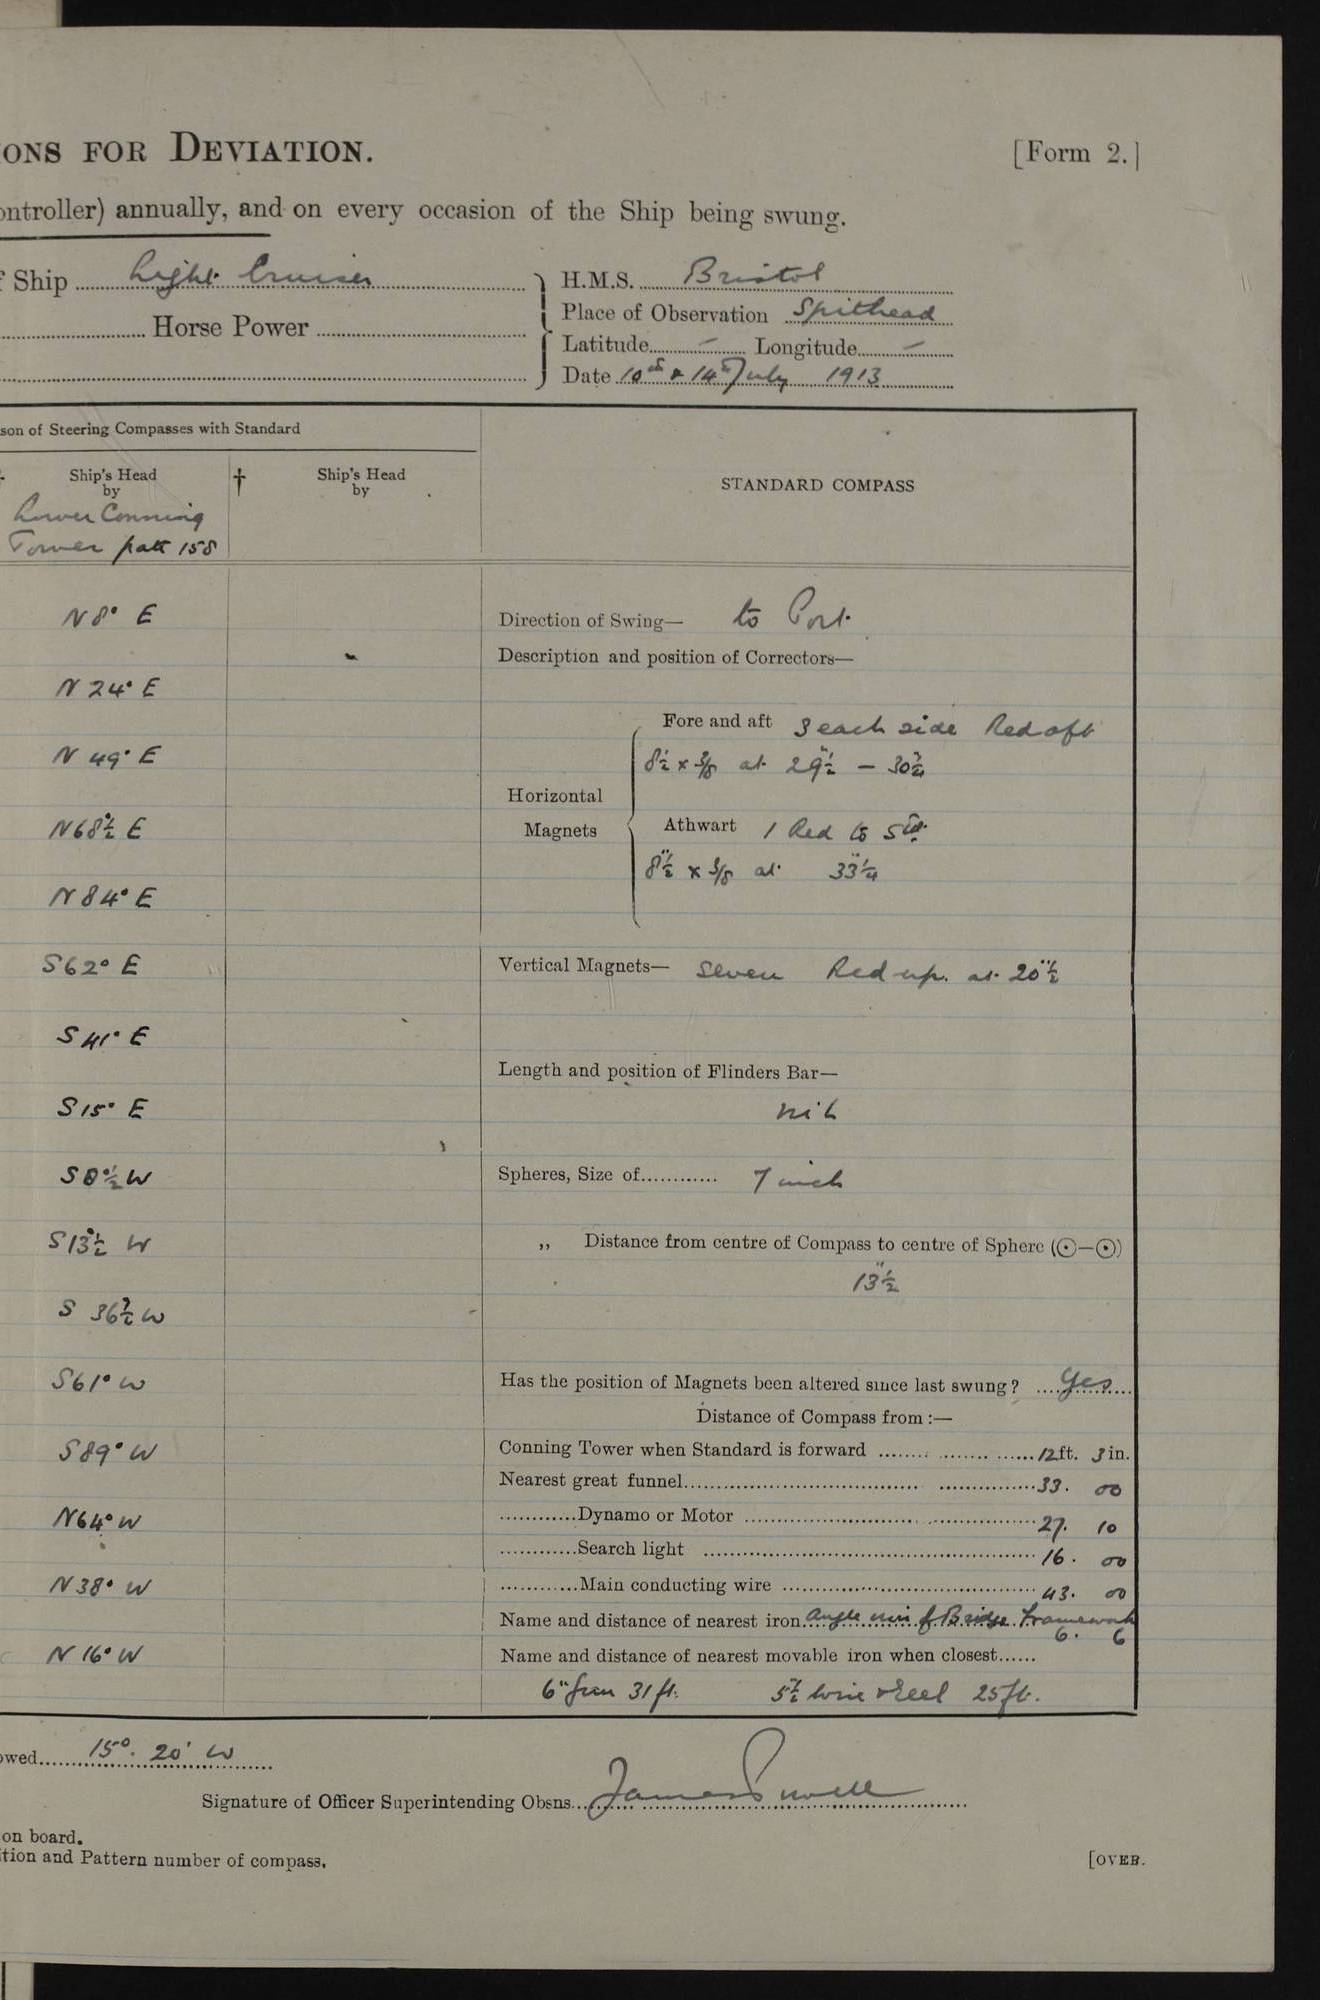 ONS FOR DEVIATION. [Form 2.]
ontroller) annually, and on every occasion of the Ship being swung.
f Ship Light Cruiser
Horse Power
H.M.S. Bristol
Place of Observation Spithead
Latitude – Longitude –
Date 10th & 14th July 1913
son of Steering Compasses with Standard
Ship's Head
by
Lower Conning
Tower patt 158
† Ship's Head
by
STANDARD COMPASS
N 8° E
N 24° E
N 49° E
N 68½° E
N 84° E
S 62° E
S 41° E
S 15° E
S 8½° W
S 13½° W
S 36½° W
S 61° W
S 89° W
N 64° W
N 38° W
N 16° W
Direction of Swing— to Port
Description and position of Correctors—
Horizontal
Magnets
Fore and aft 3 each side Red aft
8½ x 3/8 at 29½" – 30¾"
Athwart 1 Red to Std.
8½" x 3/8 at 33¼"
Vertical Magnets— Seven Red up. at 20½"
Length and position of Flinders Bar—
nil
Spheres, Size of 7 inch
„ Distance from centre of Compass to centre of Sphere (⊙—⊙)
13½"
Has the position of Magnets been altered since last swung? Yes
Distance of Compass from :—
Conning Tower when Standard is forward 12 ft. 3 in.
Nearest great funnel 33. 00
Dynamo or Motor 27. 10
Search light 16. 00
Main conducting wire 43. 00
Name and distance of nearest iron Angle iron of Bridge Framework
6. 6
Name and distance of nearest movable iron when closest
6" Gun 31 ft. 5½" wire reel 25 ft.
owed 15°. 20' W
Signature of Officer Superintending Obsns.
on board.
tion and Pattern number of compass.
[OVER.